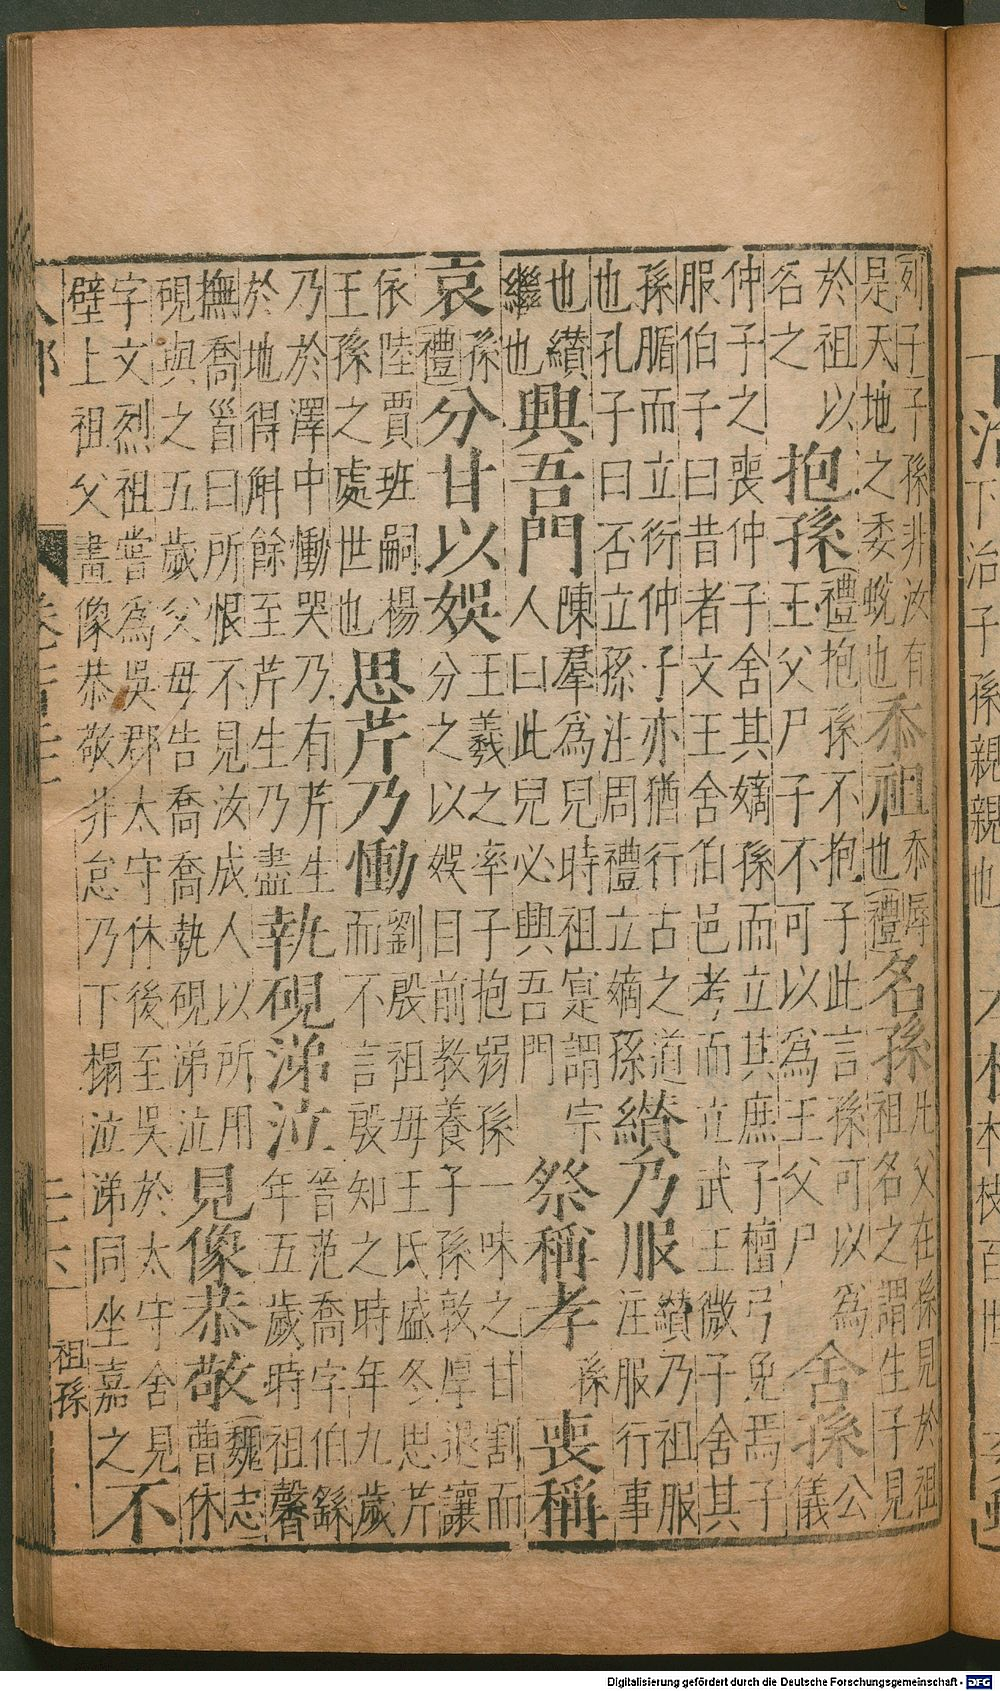 列子子孫非汝有
是天地之委蛻也
忝祖
忝辱
也禮
名孫
凡父在孫見於祖
祖名之謂生子見
於祖以
名之
抱孫
禮抱孫不抱子此言孫可以為
王父尸子不可以為王父尸
舍孫
公
儀
仲子之喪仲子舍其嫡孫而立其庶子檀弓免焉子
服伯子曰昔者文王舍伯邑考而立武王微子舍其
孫腯而立衍仲子亦猶行古之道
也孔子曰否立孫注周禮立嫡孫
纘乃服
纘乃祖服
注服行事
也纘
繼也
興吾門
陳羣為兒時祖寔謂宗
人曰此兒必興吾門
祭稱孝
孫
喪稱
哀
孫
禮
分甘以娛
王羲之率子抱弱孫一味之甘割而
分之以娛目前教養子孫敦厚退讓
依陸賈班嗣楊
王孫之處世也
思芹乃慟
劉殷祖母王氏盛冬思芹
而不言殷知之時年九歲
乃於澤中慟哭乃有芹生
於地得斛餘至芹生乃盡
執硯涕泣
晉范喬字伯
年五歲時祖馨
撫喬首曰所恨不見汝成人以所用
硯與之五歲父母告喬喬執硯涕泣
見像恭敬
魏志
曹休
字文烈祖嘗為吳郡太守休後至吳於太守舍見
壁上祖父畫像恭敬并怠乃下榻泣涕同坐嘉之
不
祖孫
Digitalisierung gefördert durch die Deutsche Forschungsgemeinschaft - DFG